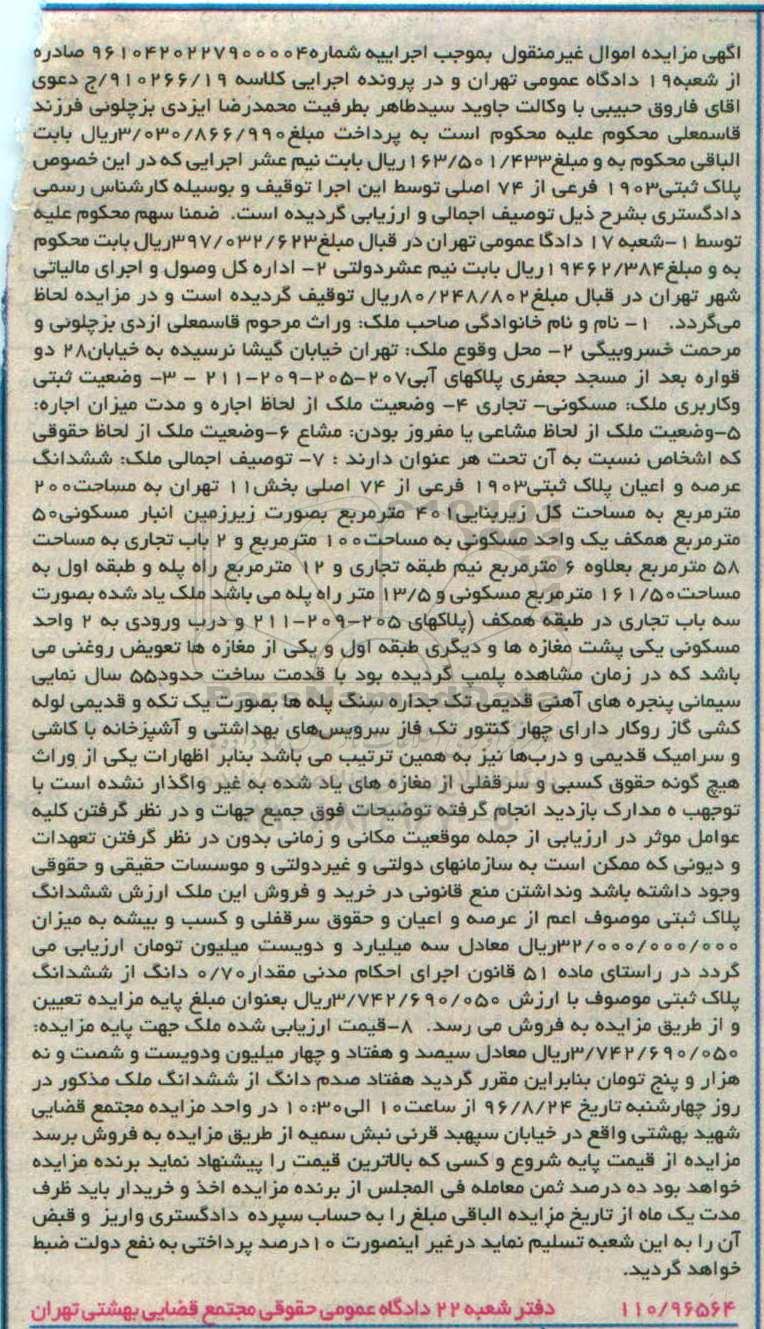 اگهی مزایده اموال غیرمنقول بموجب اجراییه شماره۹۶۱۰۴۲۰۲۲۷۹۰۰۰۰۴ صادره
از شعبه۱۹ دادگاه عمومی تهران و در پرونده اجرایی کلاسه ۹۱۰۲۶۶/۱۹/ج دعوی
اقای فاروق حبیبی با وکالت جاوید سیدطاهر بطرفیت محمدرضا ایزدی بزچلونی فرزند
قاسمعلی محکوم علیه محکوم است به پرداخت مبلغ۳/۰۳۰/۸۶۶/۹۹۰ریال بابت
الباقی محکوم به و مبلغ۱۶۳/۵۰۱/۴۳۳ریال بابت نیم عشر اجرایی که در این خصوص
پلاک ثبتی۱۹۰۳ فرعی از ۷۴ اصلی توسط این اجرا توقیف و بوسیله کارشناس رسمی
دادگستری بشرح ذیل توصیف اجمالی و ارزیابی گردیده است. ضمنا سهم محکوم علیه
توسط ۱-شعبه ۱۷ دادگا عمومی تهران در قبال مبلغ۳۹۷/۰۳۲/۶۲۳ریال بابت محکوم
به و مبلغ۱۹۴۶۲/۳۸۴ریال بابت نیم عشردولتی ۲- اداره کل وصول و اجرای مالیاتی
شهر تهران در قبال مبلغ۸۰/۲۴۸/۸۰۲ریال توقیف گردیده است و در مزایده لحاظ
می‌گردد. ۱- نام و نام خانوادگی صاحب ملک: وراث مرحوم قاسمعلی ازدی بزچلونی و
مرحمت خسروبیگی ۲- محل وقوع ملک: تهران خیابان گیشا نرسیده به خیابان۲۸ دو
قواره بعد از مسجد جعفری پلاکهای آبی۲۰۷-۲۰۵-۲۰۹-۲۱۱ - ۳- وضعیت ثبتی
وکاربری ملک: مسکونی- تجاری ۴- وضعیت ملک از لحاظ اجاره و مدت میزان اجاره:
۵-وضعیت ملک از لحاظ مشاعی یا مفروز بودن: مشاع ۶-وضعیت ملک از لحاظ حقوقی
که اشخاص نسبت به آن تحت هر عنوان دارند : ۷- توصیف اجمالی ملک: ششدانگ
عرصه و اعیان پلاک ثبتی۱۹۰۳ فرعی از ۷۴ اصلی بخش۱۱ تهران به مساحت۲۰۰
مترمربع به مساحت کل زیربنایی۴۰۱ مترمربع بصورت زیرزمین انبار مسکونی۵۰
مترمربع همکف یک واحد مسکونی به مساحت۱۰۰ مترمربع و ۲ باب تجاری به مساحت
۵۸ مترمربع بعلاوه ۶ مترمربع نیم طبقه تجاری و ۱۲ مترمربع راه پله و طبقه اول به
مساحت۱۶۱/۵۰ مترمربع مسکونی و ۱۳/۵ متر راه پله می باشد ملک یاد شده بصورت
سه باب تجاری در طبقه همکف (پلاکهای ۲۰۵-۲۰۹-۲۱۱ و درب ورودی به ۲ واحد
مسکونی یکی پشت مغازه ها و دیگری طبقه اول و یکی از مغازه ها تعویض روغنی می
باشد که در زمان مشاهده پلمپ گردیده بود با قدمت ساخت حدود۵۵ سال نمایی
سیمانی پنجره های آهنی قدیمی تک جداره سنگ پله ها بصورت یک تکه و قدیمی لوله
کشی گاز روکار دارای چهار کنتور تک فاز سرویس‌های بهداشتی و آشپزخانه با کاشی
و سرامیک قدیمی و درب‌ها نیز به همین ترتیب می باشد بنابر اظهارات یکی از وراث
هیچ گونه حقوق کسبی و سرقفلی از مغازه های یاد شده به غیر واگذار نشده است با
توجهب ه مدارک بازدید انجام گرفته توضیحات فوق جمیع جهات و در نظر گرفتن کلیه
عوامل موثر در ارزیابی از جمله موقعیت مکانی و زمانی بدون در نظر گرفتن تعهدات
و دیونی که ممکن است به سازمانهای دولتی و غیردولتی و موسسات حقیقی و حقوقی
وجود داشته باشد ونداشتن منع قانونی در خرید و فروش این ملک ارزش ششدانگ
پلاک ثبتی موصوف اعم از عرصه و اعیان و حقوق سرقفلی و کسب و بیشه به میزان
۳۲/۰۰۰/۰۰۰/۰۰۰ریال معادل سه میلیارد و دویست میلیون تومان ارزیابی می
گردد در راستای ماده ۵۱ قانون اجرای احکام مدنی مقدار۰/۷۰ دانگ از ششدانگ
پلاک ثبتی موصوف با ارزش ۳/۷۴۲/۶۹۰/۰۵۰ریال بعنوان مبلغ پایه مزایده تعیین
و از طریق مزایده به فروش می رسد. ۸-قیمت ارزیابی شده ملک جهت پایه مزایده:
۳/۷۴۲/۶۹۰/۰۵۰ریال معادل سیصد و هفتاد و چهار میلیون ودویست و شصت و نه
هزار و پنج تومان بنابراین مقرر گردید هفتاد صدم دانگ از ششدانگ ملک مذکور در
روز چهارشنبه تاریخ ۹۶/۸/۲۴ از ساعت۱۰ الی۱۰:۳۰ در واحد مزایده مجتمع قضایی
شهید بهشتی واقع در خیابان سپهبد قرنی نبش سمیه از طریق مزایده به فروش برسد
مزایده از قیمت پایه شروع و کسی که بالاترین قیمت را پیشنهاد نماید برنده مزایده
خواهد بود ده درصد ثمن معامله فی المجلس از برنده مزایده اخذ و خریدار باید ظرف
مدت یک ماه از تاریخ مزایده الباقی مبلغ را به حساب سپرده دادگستری واریز و قبض
آن را به این شعبه تسلیم نماید درغیر اینصورت ۱۰درصد پرداختی به نفع دولت ضبط
خواهد گردید.
۱۱۰/۹۶۵۶۴ دفتر شعبه ۲۲ دادگاه عمومی حقوقی مجتمع قضایی بهشتی تهران
ParsNamadData